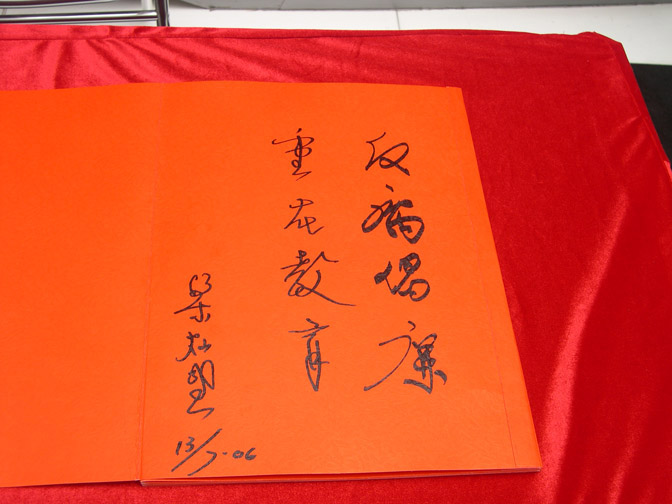 反腐倡廉
重在教育
梁
13/7-06